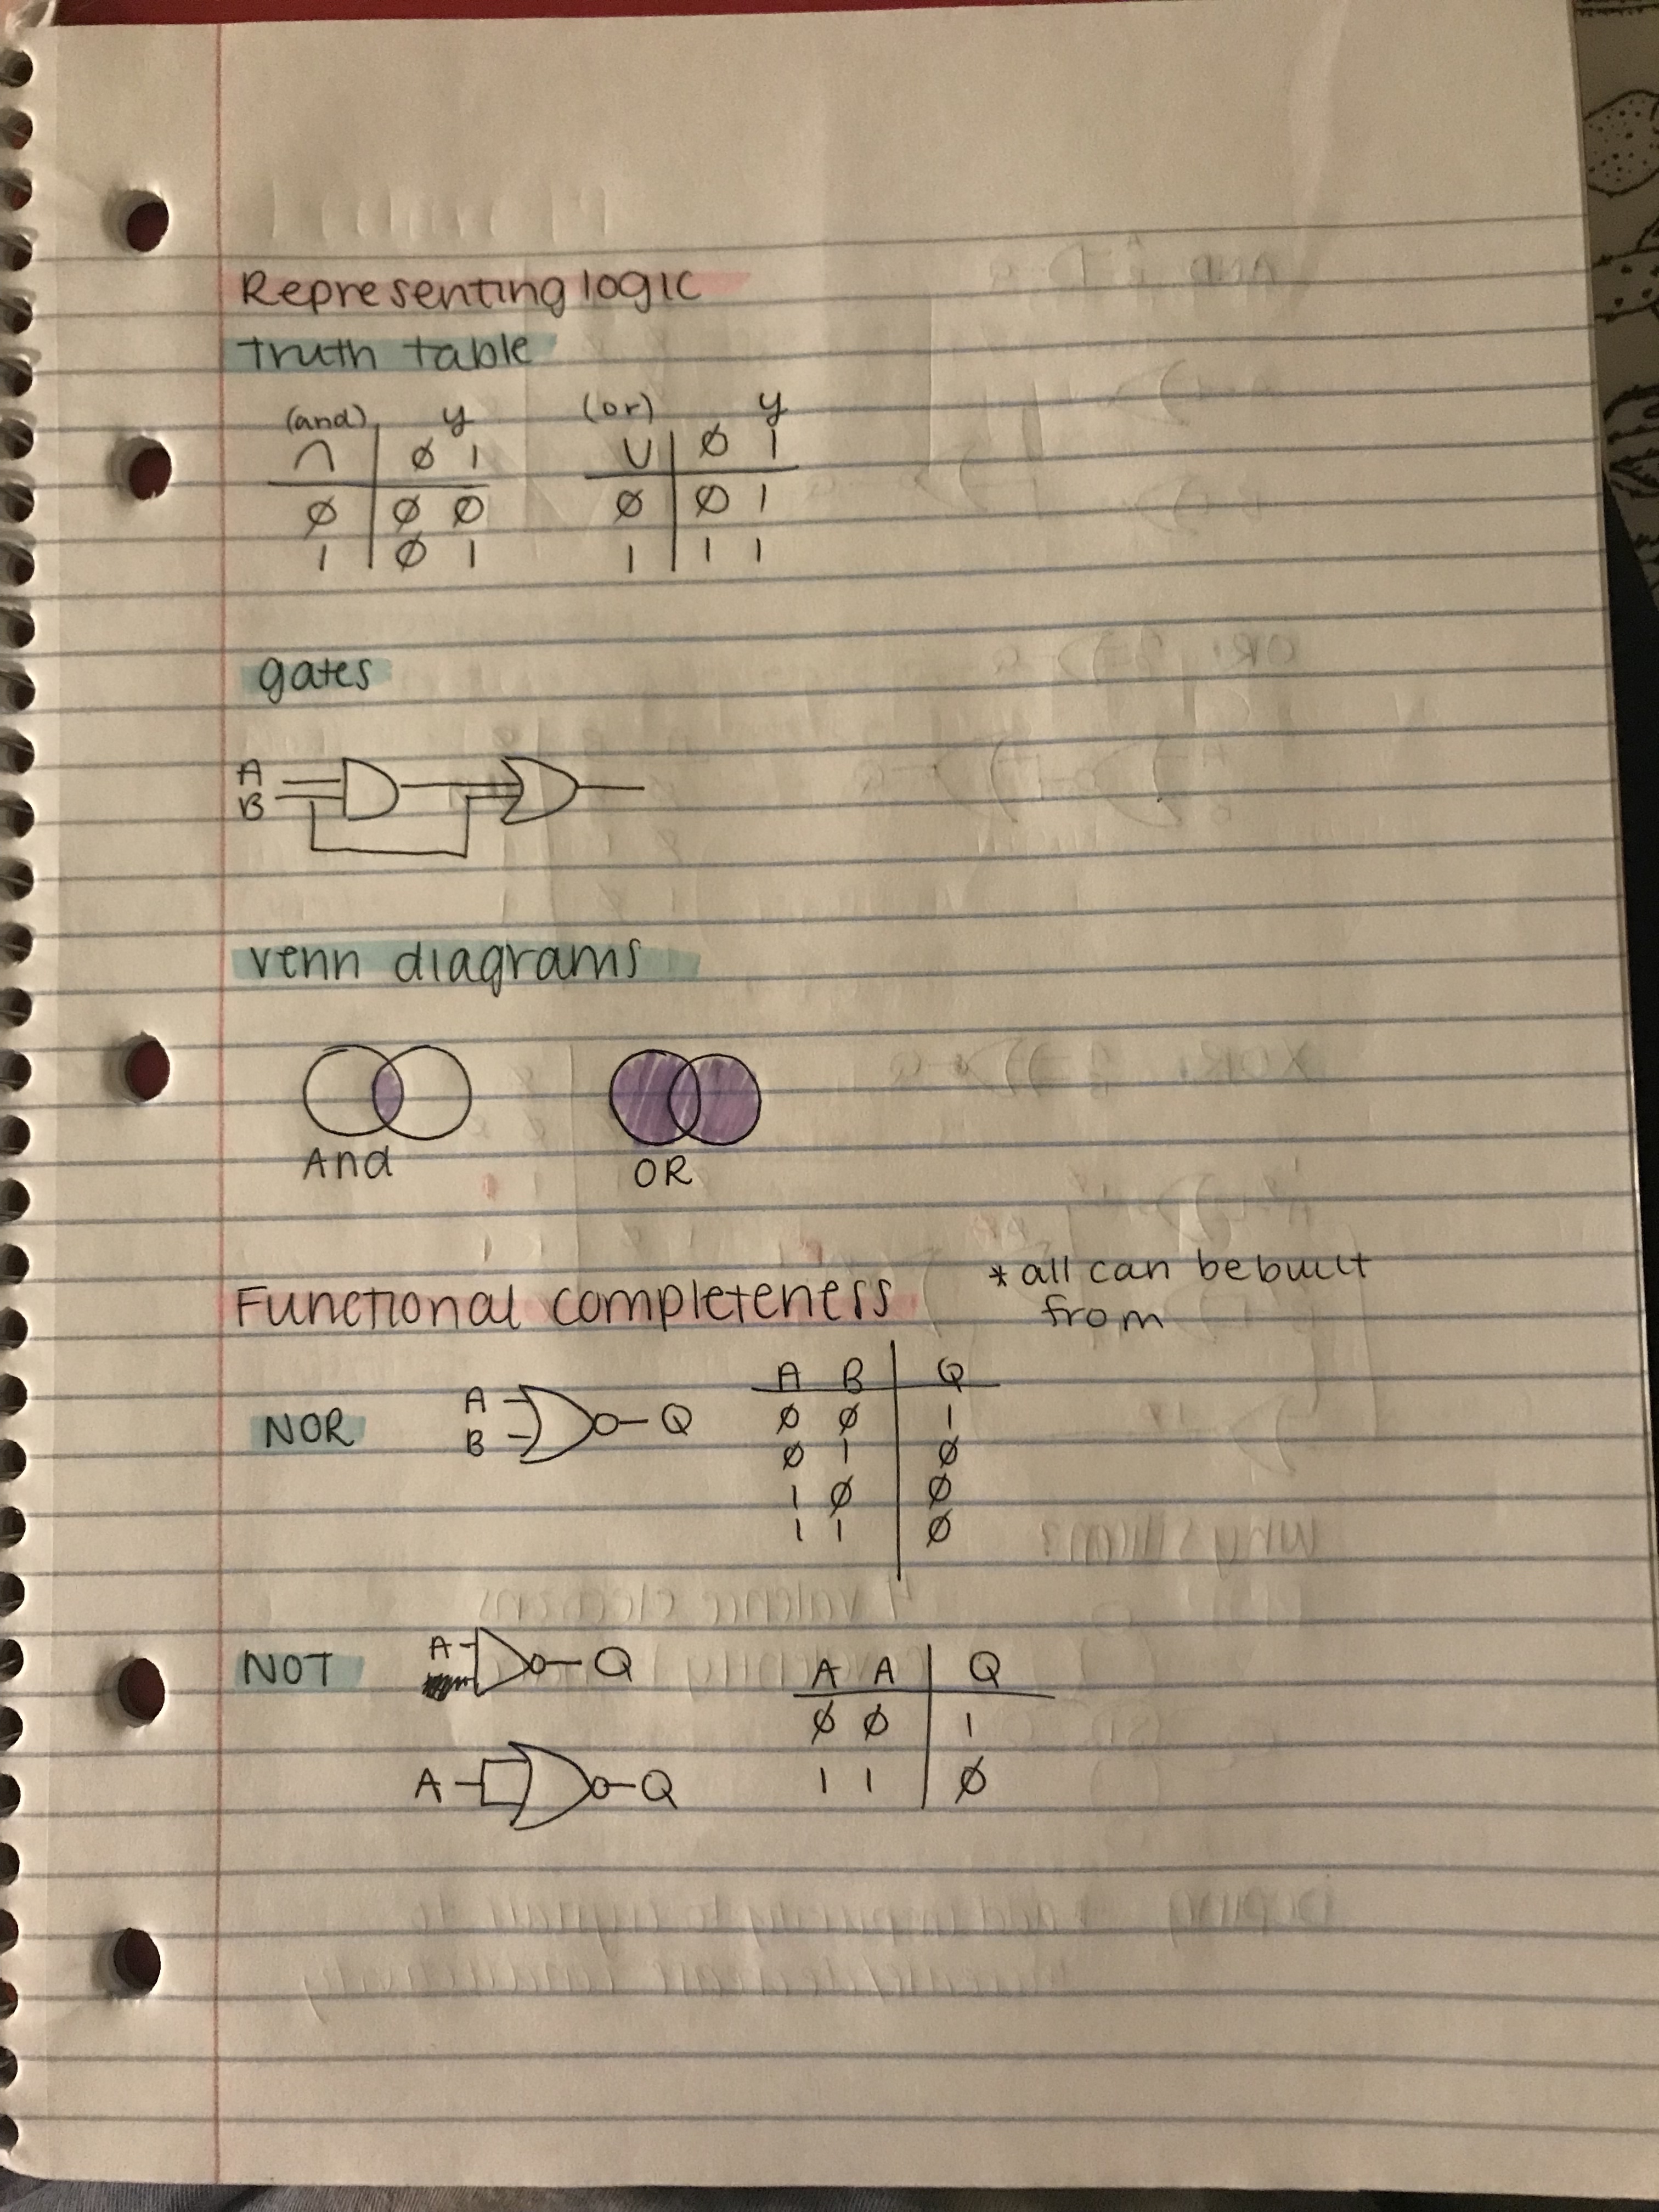 Representing logic
Truth table
(and) y (or) y
∩ Ø 1 U Ø 1
Ø Ø Ø Ø Ø 1
1 Ø 1 1 1 1
gates
A
B
venn diagrams
And OR
Functional completeness *all can be built
from
A B Q
NOR A B Q Ø Ø 1
Ø 1 Ø
1 Ø Ø
1 1 Ø
NOT A Q A A Q
Ø Ø 1
A Q 1 1 Ø